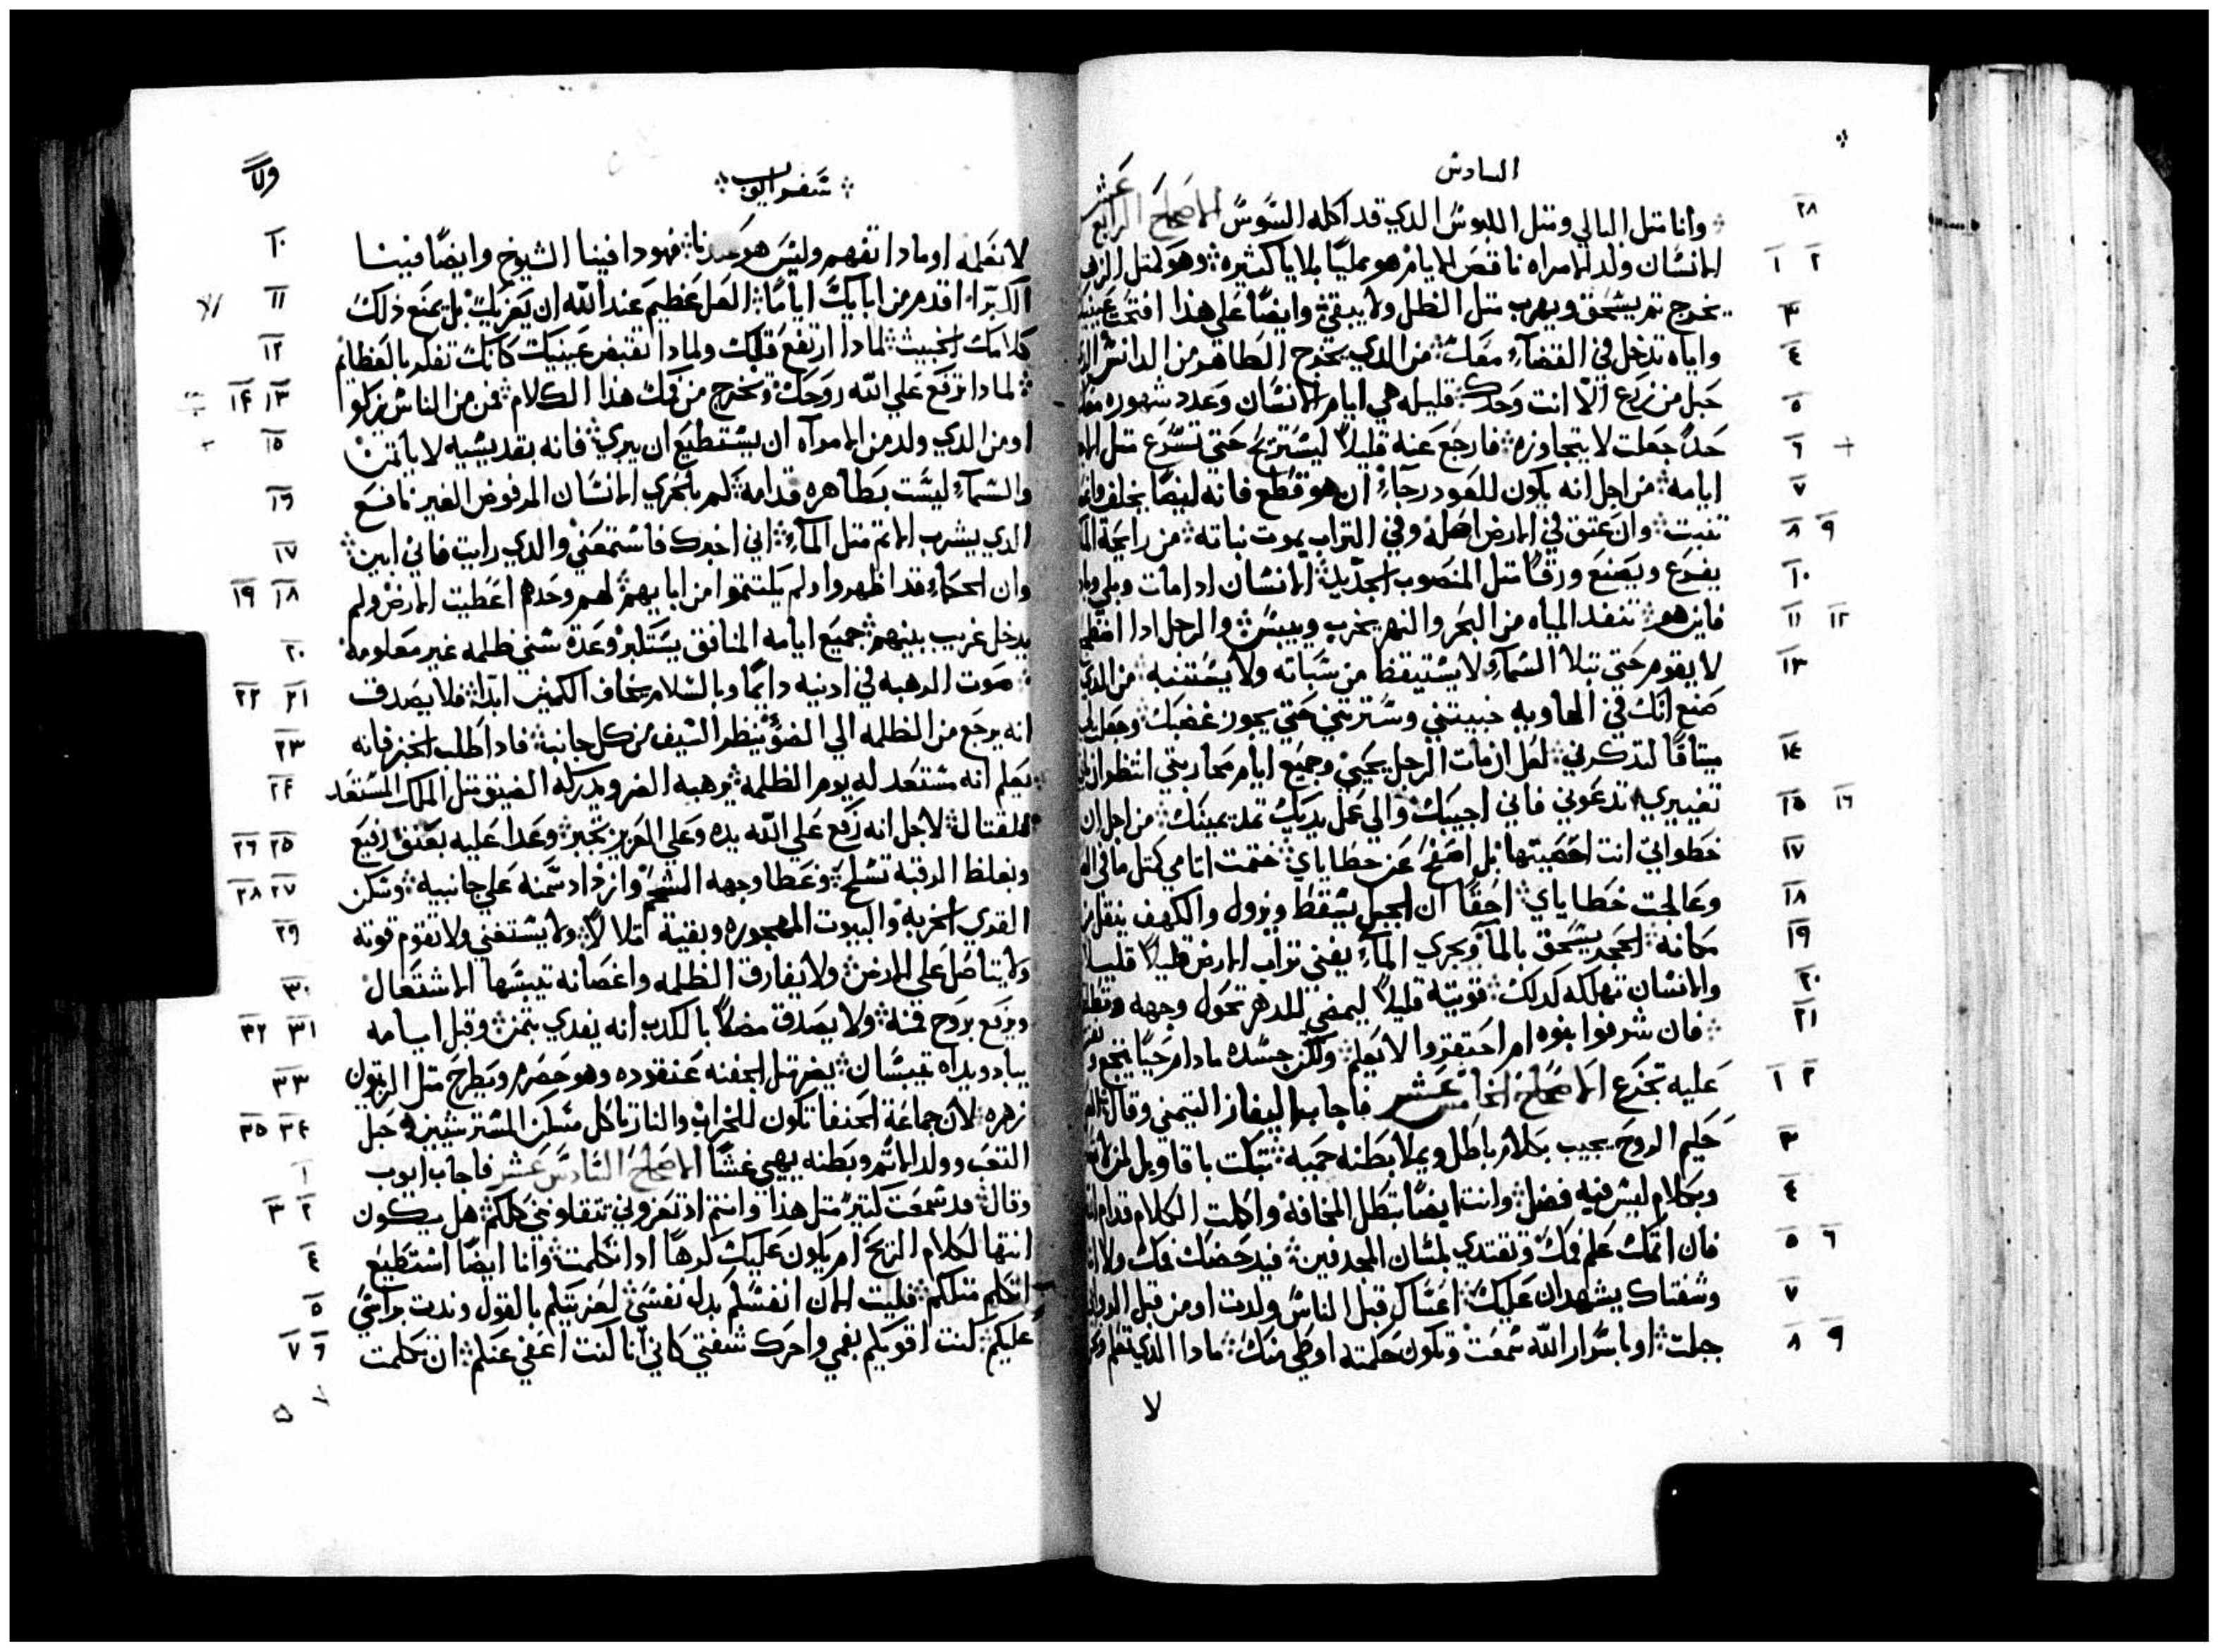 السادس
وانا مثل البالي ومثل اللبوس الدي قد اكله السوس الاصحاح الرابع عشر
الانسان ولد الامراه ناقص الايام هو مملياً بلايا كثيره وهو كمثل الزهر
يخرج تم يسحق ويهرب متل الظل ولا يبقي وايضاً علي هذا افتحت عينيك
واياه تدخل في القضاء معك من الدي يخرج الطاهر من الدانس الدي
حبل من زرع الا انت وحدك قليله هي ايام الانسان وعدد شهوره معك
حداً جعلت لا يتجاوزه فارجع عنه قليلاً ليستريح حتي تسرع متل الاجير
ايامه من اجل انه يكون للعود رجاء ان هو قطع فانه ايضاً يخلف
تنبت وان عتق في الارض اصله وفي التراب يموت نباته من رايحة الماء
يفرع ويصنع ورقاً متل المنصوب الجديد الانسان ادا مات وبلي
فاين هو تنفد المياه من البحر والنهر يخرب وييبس والرجل ادا اضطجع
لا يقوم حتي تبلا السماء لا يستيقظ من سباته ولا يستنبه من الدي
صنع انك في الهاويه خبيتني وسترتني حتي يجوز غضبك وجعلت لي
ميتاقاً لتدكرني لعل ان مات الرجل يحيي وجميع ايام محاربتي انتظر ان
تغييري تدعوني فاني اجيبك والي عمل يديك تمد يمينك من اجل ان
خطواتي انت احصيتها بل اصفح عن خطاياي ختمت اتامي كمتل ما في
وعالجت خطاياي احقاً ان الجبل يسقط ويزول والكهف ينقل من
مكانه الحجر يسحق بالماء ويجري الماء يفني تراب الارض قليلاً قليلاً
والانسان تهلكه كدلك قويته قليلاً ليمضي للدهر تحول وجهه وتطلقه
فان شرفوا بنوه ام احتقروا لا يعلم ولكن جسده ما دام حياً يتجع ونفسه
عليه تجزع الاصحاح الخامس عشر فاجاب اليفاز التيمني وقال
حكيم الروح يجيب بكلام باطل ويملا بطنه حميه تبكت باقاويل لمن
وبكلام ليس فيه فضل وانت ايضاً تبطل المخافه واكلت الكلام قدام الله
فان اتمك علم فمك وتقتدي بلسان المجدفين فيدحضك فمك ولا انا
وشفتاك يشهدان عليك اعساك قبل الناس ولدت او من قبل الروابي
جبلت او باسرار الله سمعت وتكون حكمته اوطي منك مادا الدي تعلم ولا
لا
سفر ايوب
لا نعلمه او مادا تفهم وليس هو عندنا فهودا فينا الشيوخ وايضاً فينا
الكبراء اقدم من ابايك اياماً العل عظيم عند الله ان يعزيك بل يمنع ذلك
كلامك الخبيث لمادا ارتفع قلبك ولمادا تقتبض عينيك كانك تفكر بالعظايم
لمادا ترفع علي الله روحك وتخرج من فمك هذا الكلام فمن من الناس يزكوا
او من الدي ولد من الامرآه ان يستطيع ان يبري فانه بقديسيه لا ياتمن
والسماء ليست بطاهره قدامه كم بالحري الانسان المرفوض الغير نافع
الدي يشرب الاتم متل الماء اني اخبرك فاستمعني والدي رايت فاني ابين
وان الحكماء قد اظهروا ولم يكتموا من ابايهم لهم وحدهم اعطيت الارض ولم
يدخل غريب بينهم جميع ايامه المنافق يستكبر وعدة سني ظلمه غير معلومه
صوت الرهبه في ادنيه دايماً وبالسلام يخاف الكمين ابداً فلا يصدق
انه يرجع من الظلمه الي الضوء ينظر السيف من كل جانبه فادا طلب الخبز فانه
يعلم انه مستعد له يوم الظلمه يرهبه الضر ويدركه الضيق متل الملك المستعد
للقتال لاجل انه رفع علي الله يده وعلي العزيز تجبر وعدا عليه بعنق رفيع
وبغلظ الرقبه تسلح وغطا وجهه الشحم وازداد سمنه علي جانبيه وسكن
القري الخربه والبيوت المهجوره وبقية اتلالاً ولا يستغني ولا تقوم قوته
ولا يتاصل علي الارض ولا يفارق الظلمه واغصانه تيبسها الاشتعال
ويرفع بروح فمه ولا يصدق مضلاً بالكدب انه يفدي بتمن وقبل ايامه
يباد ويداه تيبسان يضر متل الجفنه عنقوده وهو حصرم ويطرح متل الزيتون
زهره لان جماعة الحنفا تكون للخراب والنار تاكل مسكن المسترشيين حبل
التعب وولد الاتم وبطنه يهيي غشاً الاصحاح السادس عشر فاجاب ايوب
وقال قد سمعت كتيراً متل هذا وانتم اد تعزوني تتقاوني كلكم هل يكون
انتها لكلام الريح ام يكون عليك كرهاً ادا تكلمت وانا ايضاً استطيع
اتكلم متلكم فليت الان انفسكم بدل نفسي لعزيتكم بالقول وندت براسي
عليكم كنت اقويكم بفمي واحرك شفتي كاني انا كنت اعفي عنكم ان تكلمت